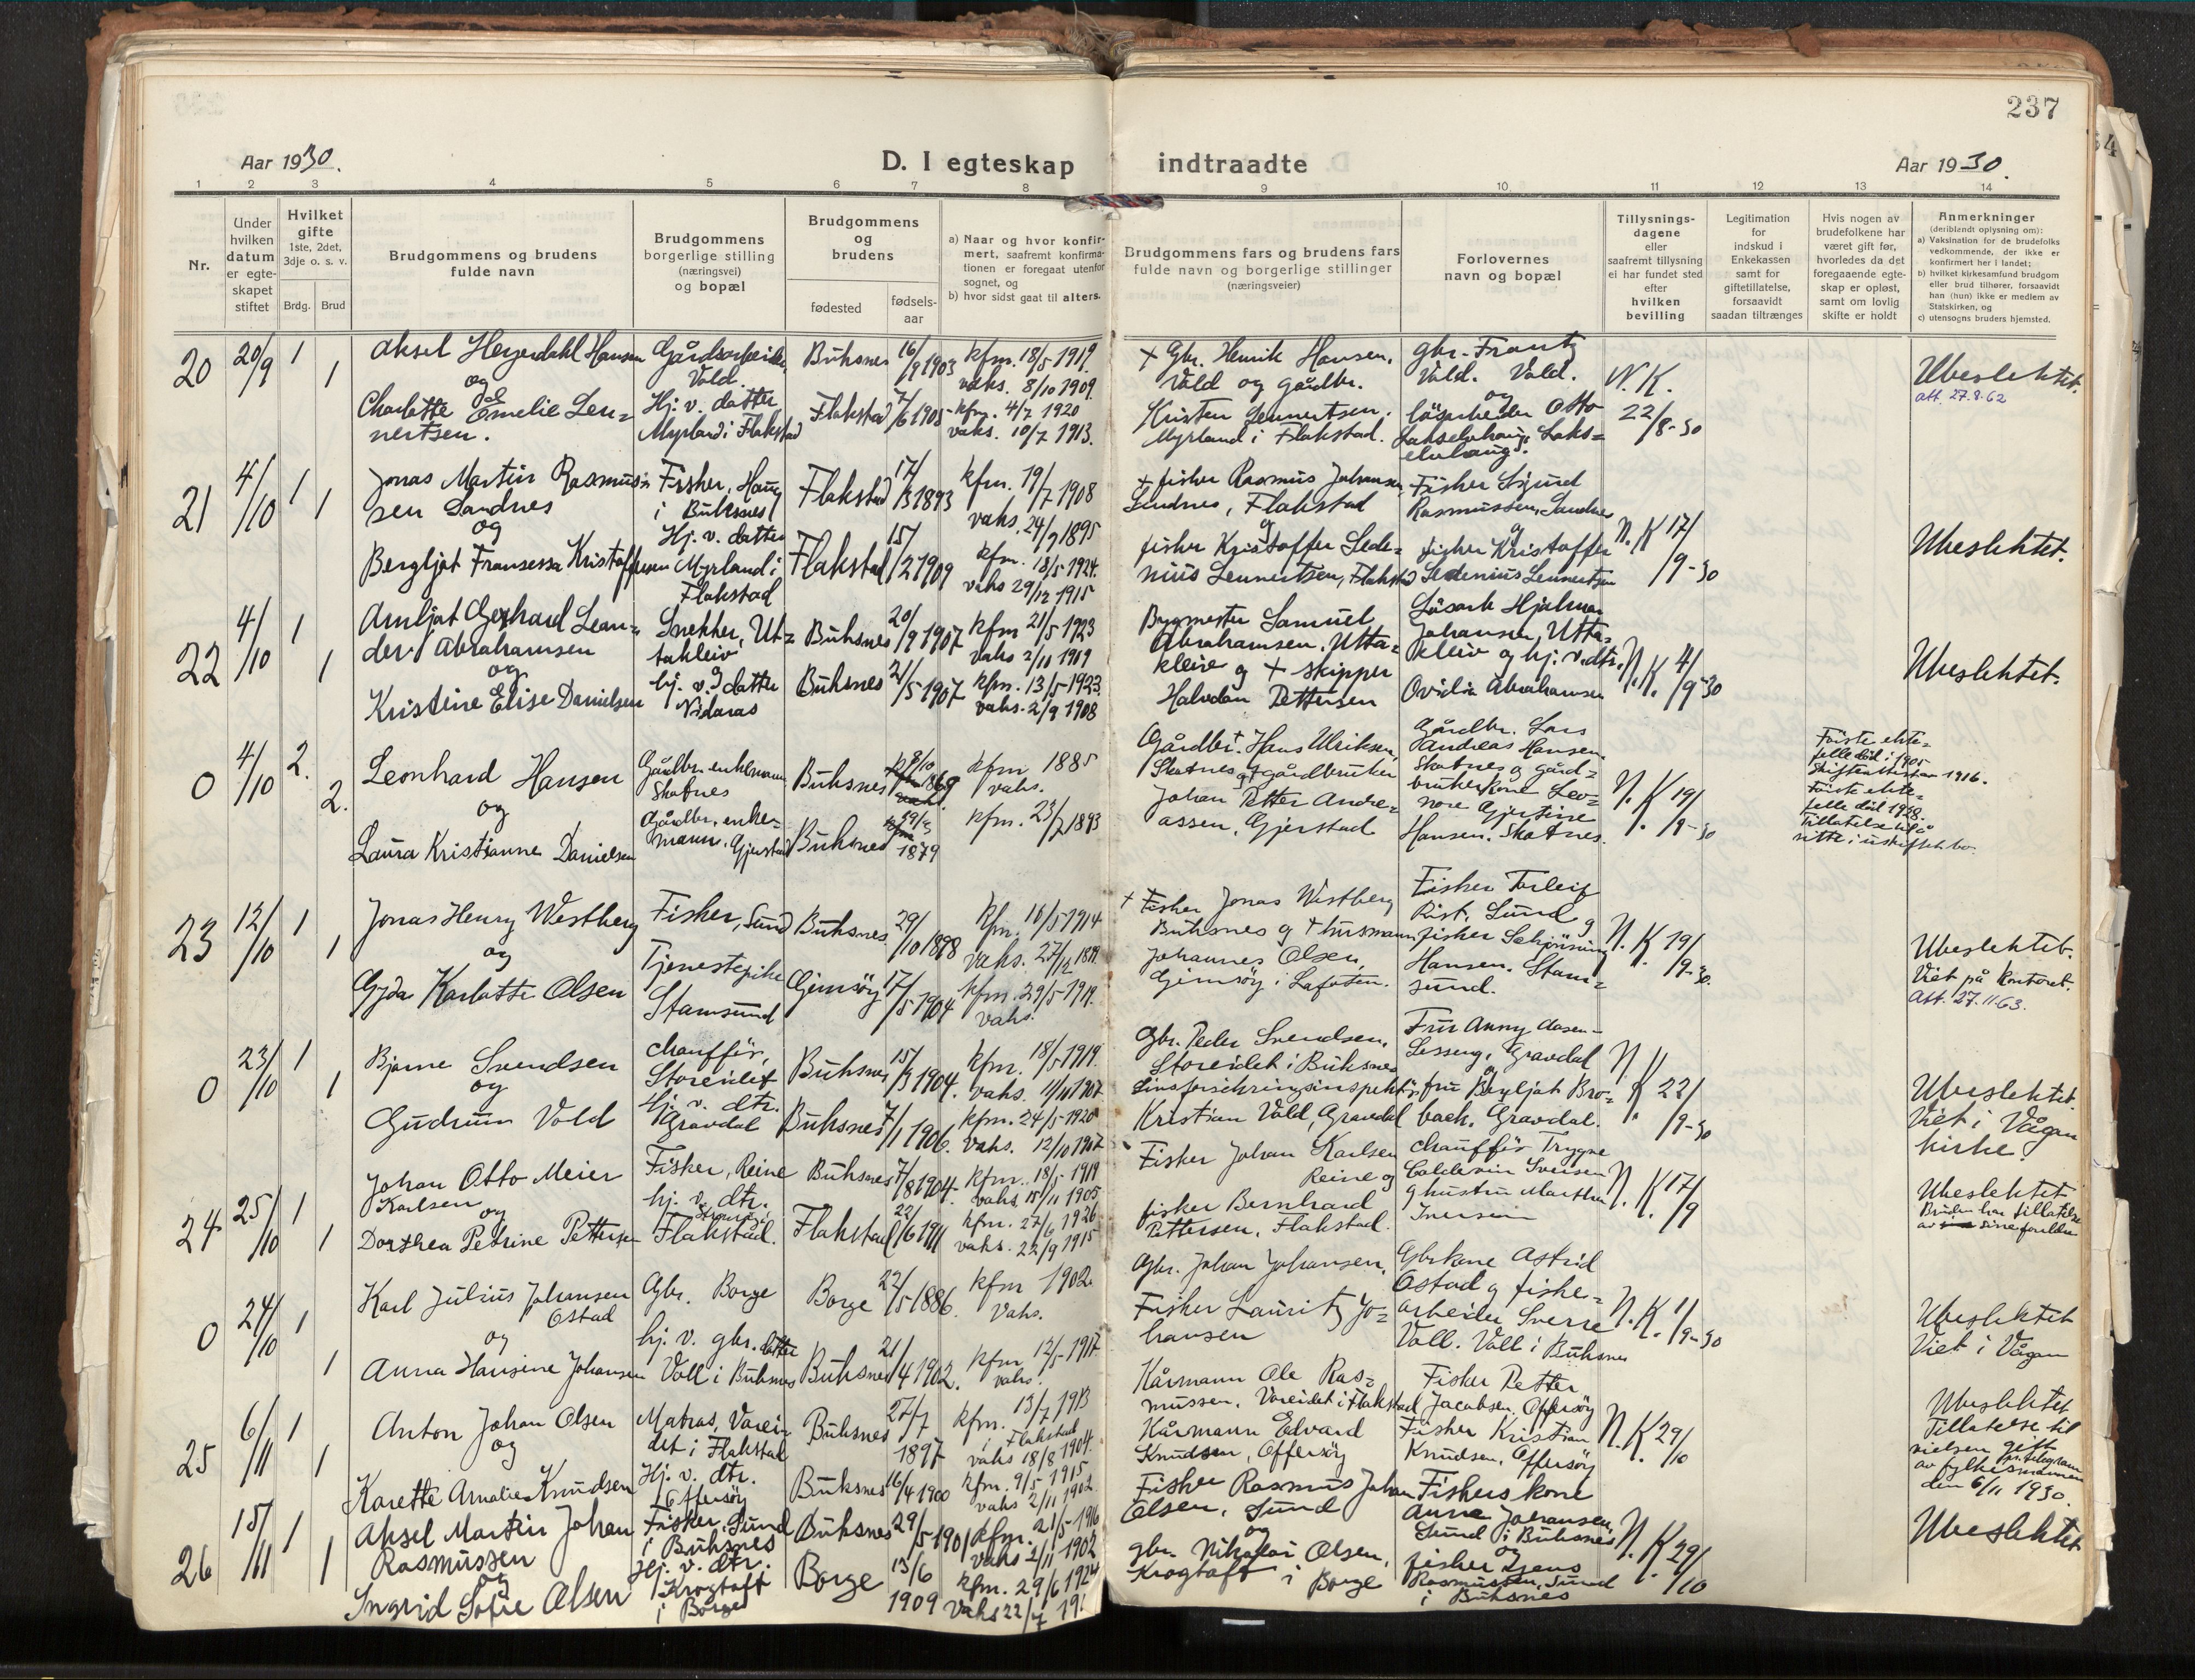 237
Aar 1930.
D. I egteskap indtraadte
Aar 1930.
1 2 3 4 5 6 7 8 9 10 11 12 13 14
Nr.
Under hvilken datum er egteskapet stiftet
Hvilket gifte 1ste, 2det, 3dje o. s. v.
Brdg. Brud
Brudgommens og brudens fulde navn
Brudgommens borgerlige stilling (næringsvei) og bopæl
Brudgommens og brudens
fødested
fødsels-aar
a) Naar og hvor konfirmert, saafremt konfirmationen er foregaat utenfor sognet, og
b) hvor sidst gaat til alters.
Brudgommens fars og brudens fars fulde navn og borgerlige stillinger (næringsveier)
Forlovernes navn og bopæl
Tillysningsdagene eller saafremt tillysning ei har fundet sted efter hvilken bevilling
Legitimation for indskud i Enkekassen samt for giftetillatelse, forsaavidt saadan tiltrænges
Hvis nogen av brudefolkene har været gift før, hvorledes da det foregaaende egteskap er opløst, samt om lovlig skifte er holdt
Anmerkninger (deriblandt oplysning om):
a) Vaksination for de brudefolks vedkommende, der ikke er konfirmert her i landet;
b) hvilket kirkesamfund brudgom eller brud tilhører, forsaavidt han (hun) ikke er medlem av Statskirken, og
c) utensogns bruders hjemsted.
20 20/9 1 1
Aksel Heyerdahl Hansen
og
Charlotte Emelie Lennertsen.
Gårdsarbeider, Vold.
Hj. v. datter Myrland i Flakstad
Buksnes 16/9 1903 kfm. 18/5 1919. vaks. 8/10 1909.
Flakstad 7/6 1905 kfm. 4/7 1920 vaks. 10/7 1913.
+ Gbr. Henrik Hansen, Vold og gårdbr.
Kristen Lennertsen. Myrland i Flakstad.
gbr. Frantz Vold. Vold.
og
løsarbeider Otto
N. K. 22/8-30
Ubeslektet.
att. 27.8.62
21 4/10 1 1
Jonas Martin Rasmussen Sandnes
og
Bergljot Fransessa Kristoffersen
Fisker, Haug i Buksnes
Hj. v. datter Myrland i Flakstad
Flakstad 17/3 1893 kfm. 19/7 1908 vaks. 24/9 1895
Flakstad 15/2 1909 kfm. 18/5-1924. vaks 29/12 1915
+ fisker Rasmus Johansen Sandnes, Flakstad
og
fisker Kristoffer Sedenius Lennertsen, Flakstad
Fisker Sigurd Rasmussen, Sandnes
og
fisker Kristoffer Sedenius Lennertsen
N. K 17/9-30
Ubeslektet.
22 4/10 1 1
Arnljot Gerhard Leander Abrahamsen
og
Kristine Elise Danielsen
Snekker, Uttakleiv
hj. v. datter
Buksnes 20/9 1907 kfm 21/5 1923 vaks 2/11 1909
Buksnes 21/5 1907 kfm. 13/5-1923. vaks. 2/9 1908
Bygmester Samuel Abrahamsen, Uttakleiv og + skipper Halvdan Pettersen
Løsarb Hjalmar Johansen, Uttakleiv og hj. v. dtr. Ovidia Abrahamsen
N. K. 4/9-30
Ubeslektet.
0 4/10 2. 2.
Leonhard Hansen
og
Laura Kristianne Danielsen
Gårdbr. enkemann Skotnes
Gårdbr. enkemann, Gjerstad
Buksnes 1869 kfm 1885 vaks.
Buksnes 1879 kfm. 23/7 1893
Gårdbr. + Hans Ulriksen, Skotnes og + gårdbruker Johan Petter Andreassen, Gjerstad
Gårdbr. Lars Andreas Hansen Skotnes og gårdbruker kone Leonore Gjertine Hansen. Skotnes.
N. K 19/9-30
Første ektefelle død i 1905 Skifteattest av 1916.
første ektefelle død 1928. Tillatelse til å sitte i uskiftet bo.
23 12/10 1 1
Jonas Henry Westberg
og
Gyda Karlotte Olsen
Fisker, Sund
Tjenestepike Stamsund
Buksnes 29/10 1898 kfm. 16/5 1914 vaks. 27/12 1899.
Gimsøy 17/5 1904 kfm. 29/5-1919. vaks.
+ Fisker Jonas Westberg Buksnes og + husmann Johannes Olsen, Gimsøy i Lofoten.
Fisker Torleif Rist, Sund og fisker Schjønning Hansen. Stamsund.
N. K 19/9-30.
Ubeslektet.
Viet på kontoret.
Att. 27.11.63.
0 23/10 1 1
Bjarne Svendsen
og
Gudrun Vold
chauffør, Storeidet
Hj. v. dtr. Gravdal
Buksnes 15/3 1904. kfm. 18/5 1919. vaks. 11/11 1907
Buksnes 7/1 1906. kfm. 24/5-1920 vaks. 12/10 1907
Gbr. Peder Svendsen, Storeidet i Buksnes
Kristian Vold, Gravdal
Fru Anny Aasen-Lesseng, Gravdal
og
fru Bergljot Brobach, Gravdal.
N. K. 22/9-30
Ubeslektet.
Viet i Vågan kirke.
24 25/10 1 1
Johan Otto Meier Karlsen
og
Dorthea Petrine Pettersen
Fisker, Reine
hj. v. dtr. Flakstad.
Buksnes 7/8 1904. kfm. 18/5-1919 vaks. 15/11 1905
Flakstad 22/6 1911 kfm. 27/6 1926 vaks. 22/9 1915
Fisker Johan Karlsen Reine og
fisker Bernhard Pettersen, Flakstad.
chauffør Trygve Baldevin Iversen og hustru Marthea Iversen
N. K. 17/9
Ubeslektet
Bruden har tillatelse av sine foreldre
0 24/10 1 1
Karl Julius Johansen Ostad
og
Anna Hansine Johansen
Gbr. Borge
hj. v. gbr. datter Voll i Buksnes
Borge 22/5 1886. kfm 1902 vaks.
Buksnes 21/4 1902. kfm 12/5-1917 vaks.
Gbr. Johan Johansen.
Fisker Lauritz Johansen
Gbrkone Astrid Ostad og fiskearbeider Sverre Voll. Voll i Buksnes
N. K. 1/9-30
Ubeslektet
Viet i Vågan
25 6/11 1 1
Anton Johan Olsen
og
Karette Amalie Knudsen
Matros, Vareidet i Flakstad
Hj. v. dtr. Offersøy
Buksnes 27/7 1897 kfm. 13/7 1913 i Flakstad vaks 18/8 1904.
Buksnes 16/4 1900 kfm. 9/5 1915 vaks 2/11 1902
Kårmann Ole Rasmussen, Vareidet i Flakstad
Kårmann Edvard Knudsen, Offersøy
Fisker Petter Jacobsen, Offersøy
Fisker Kristian Knudsen, Offersøy
N. K 29/10
Ubeslektet
Tillatelse til vielsen gitt pr. telegram av fylkesmannen den 6/11 1930.
26 15/11 1 1
Aksel Martin Johan Rasmussen
og
Ingrid Sofie Olsen
Fisker, Sund i Buksnes
Hj. v. dtr. Krogtoft i Borge
Buksnes 29/5-1901 kfm. 21/5-1916 vaks 2/11 1902
Borge 13/6 1909 kfm. 29/6 1924 vaks 22/7
Fisker Rasmus Johan Olsen, Sund
og
gbr. Nikolai Olsen, Krogtoft i Borge
Fiskers kone Anna Johansen, Sund i Buksnes
og
fisker Jens Rasmussen, Sund i Buksnes
N. K 29/10
Ubeslektet